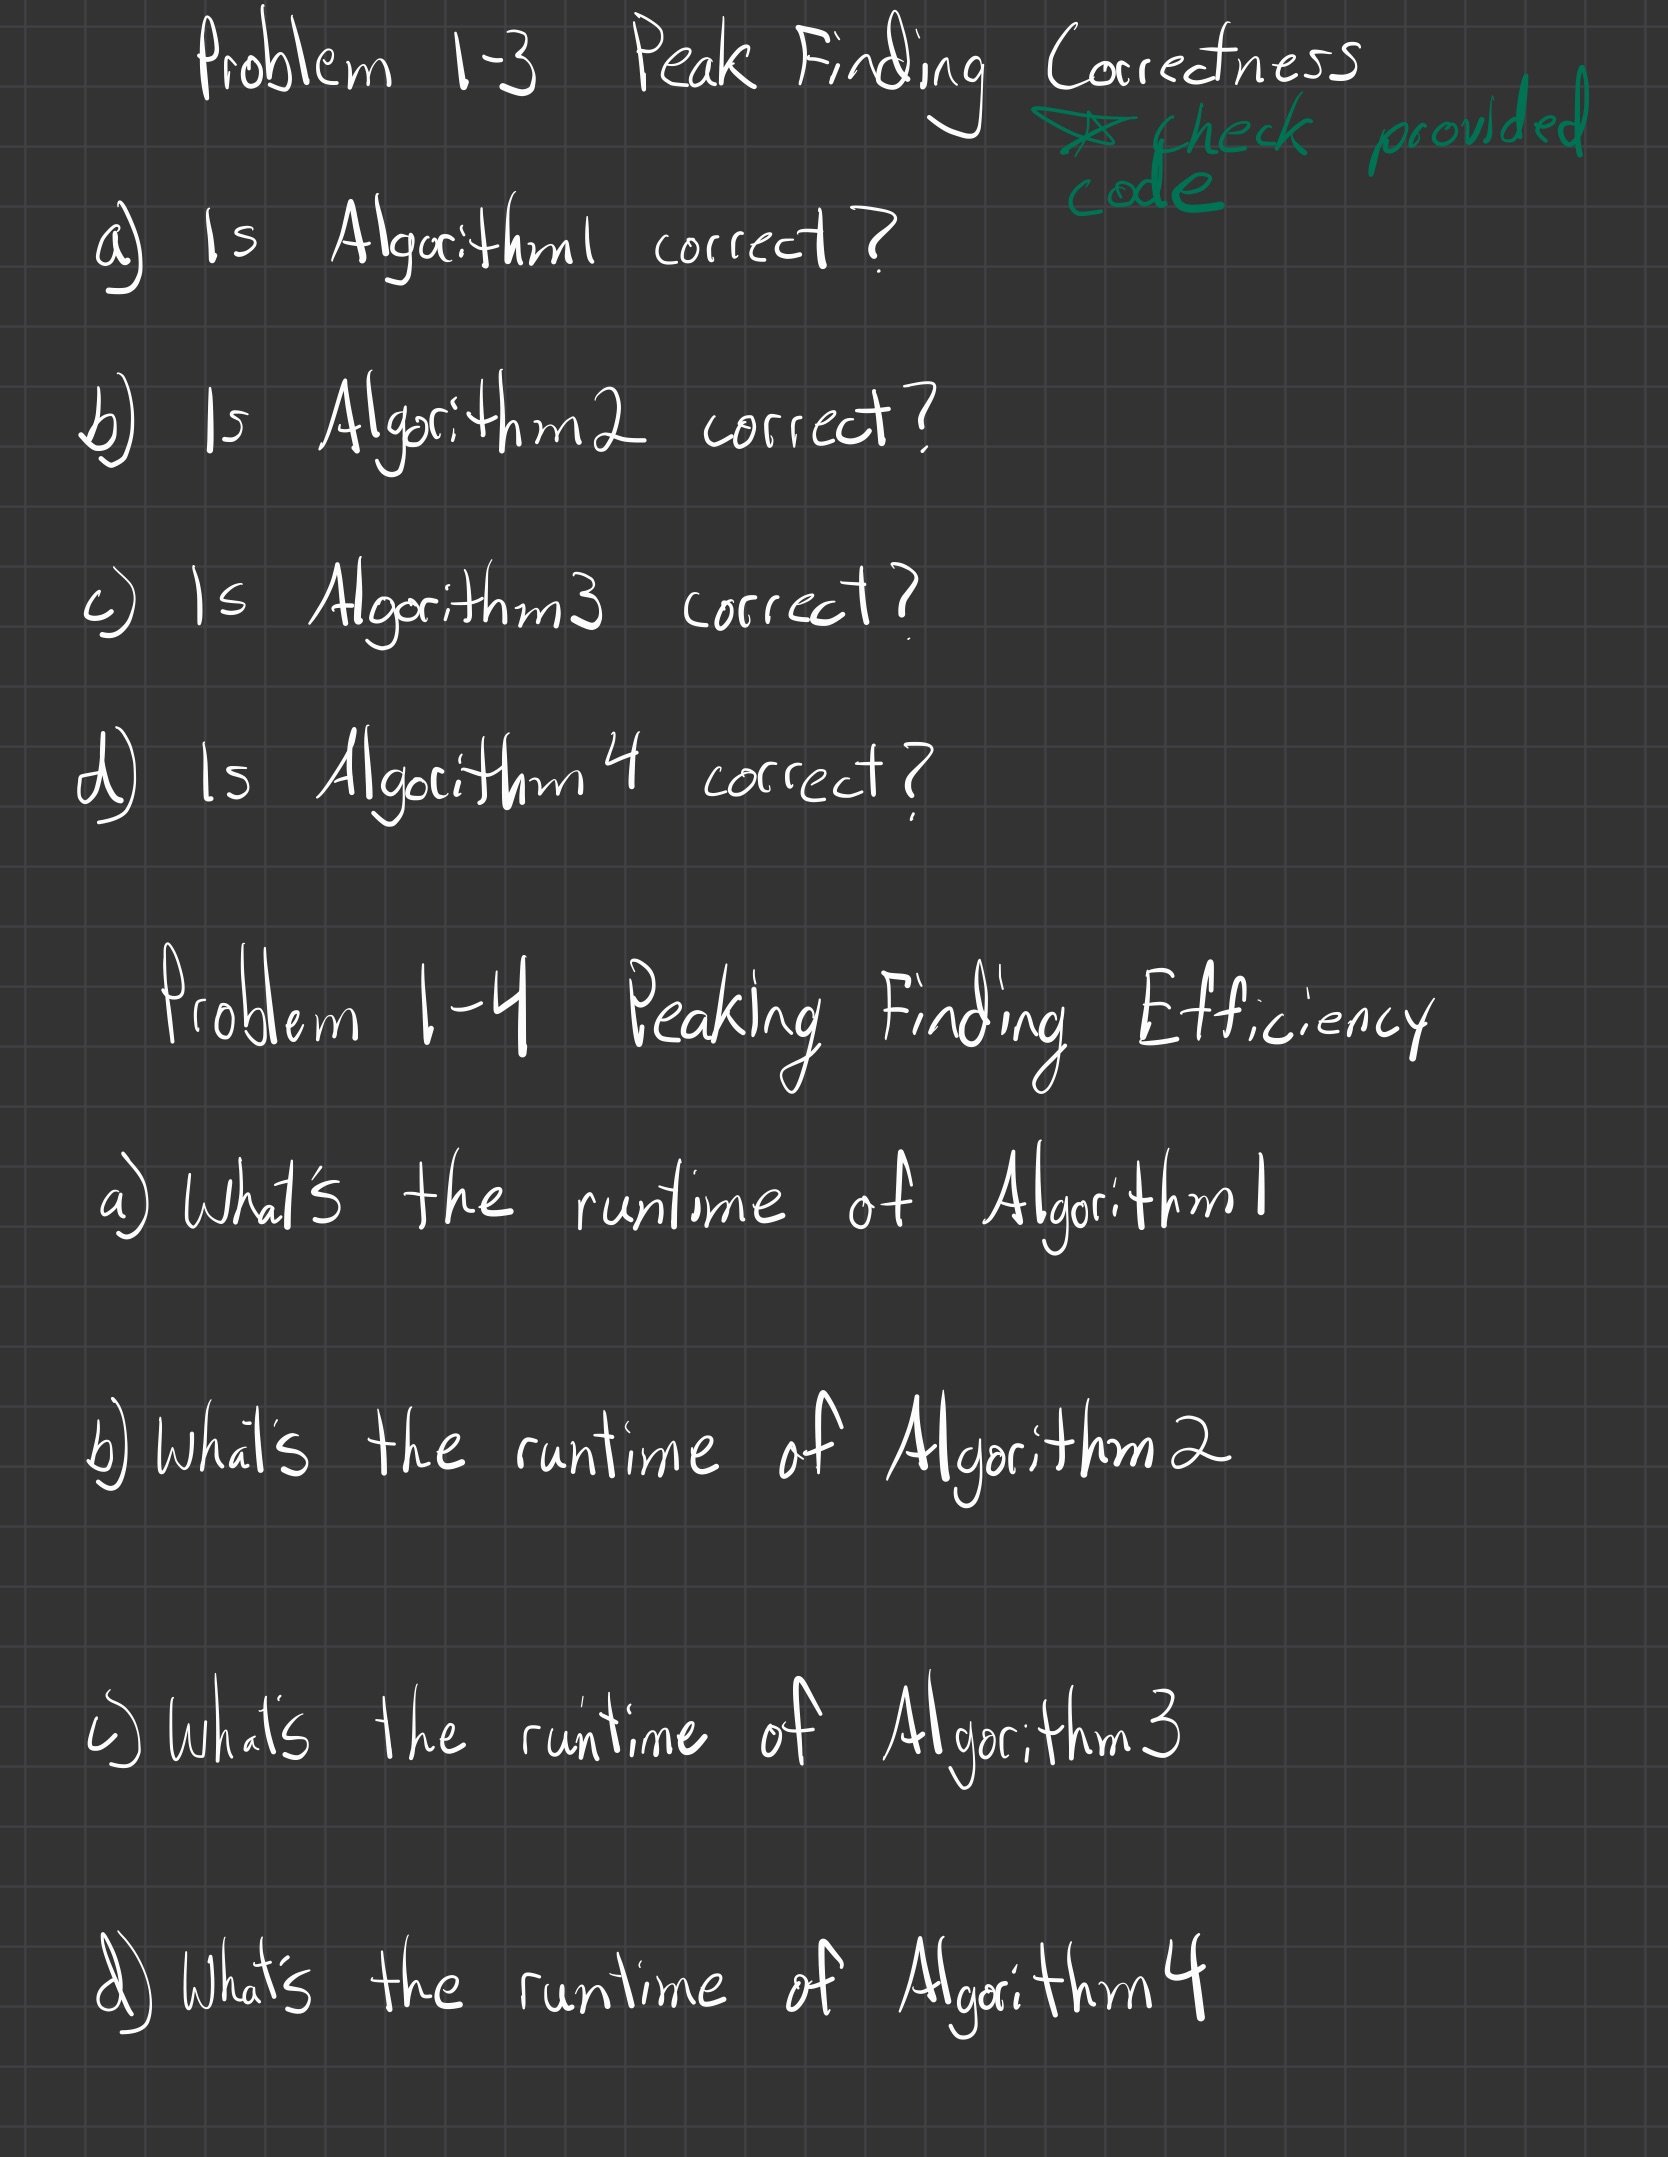 Problem 1-3 Peak Finding Correctness
* check provided
code
a) Is Algorithm1 correct?
b) Is Algorithm2 correct?
c) Is Algorithm3 correct?
d) Is Algorithm4 correct?
Problem 1-4 Peaking Finding Efficiency
a) What's the runtime of Algorithm1
b) What's the runtime of Algorithm2
c) What's the runtime of Algorithm3
d) What's the runtime of Algorithm4